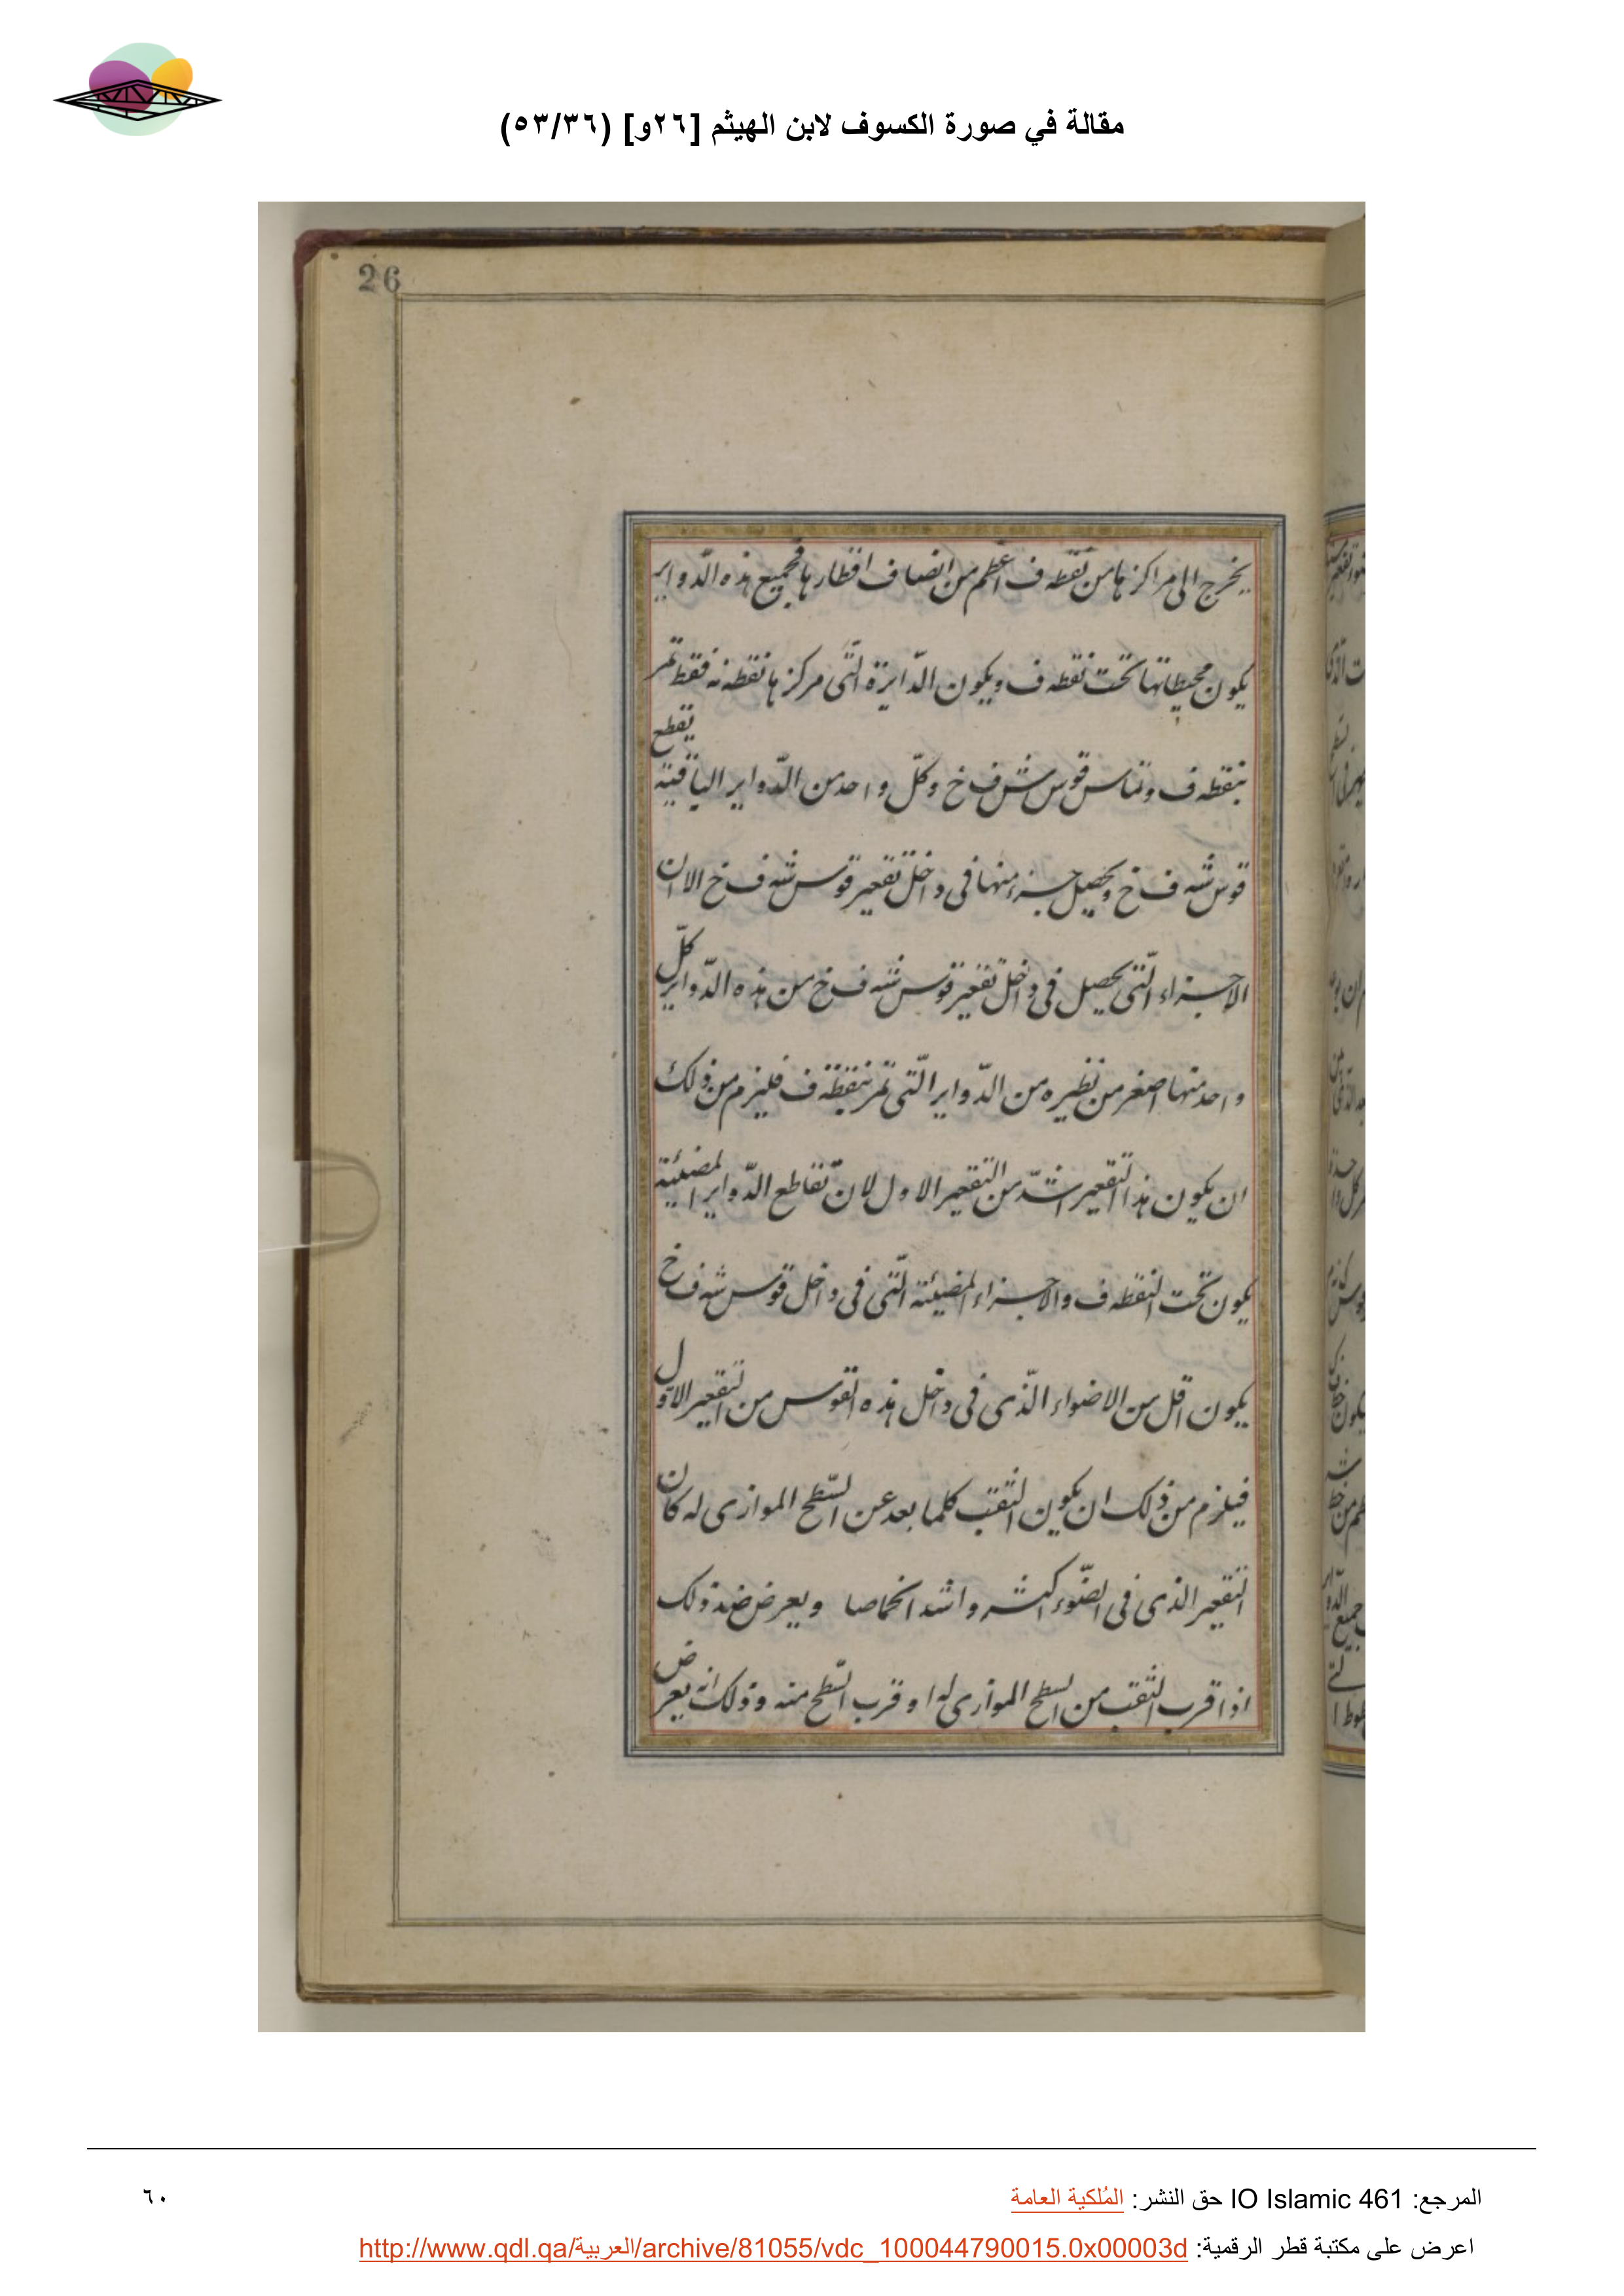 مقالة في صورة الكسوف لابن الهيثم [٢٦و] (٥٣/٣٦)
26
يخرج الى مراكزها من نقطه ف اعظم من انصاف اقطارها فجميع هذه الدّواير
يكون محيطاتها تحت نقطه ف ويكون الدّايرة الّتى مركزها نقطه نه فقط تمر
بنقطه ف وتماس قوس ش ف خ وكلّ واحد من الدّواير الباقية يقطع
قوس شه ف خ ويحصل جزء منها فى داخل تقعير قوس شه ف خ الا ان
الاجزاء الّتى يحصل فى داخل تقعير قوس شه ف خ من هذه الدّواير كلّ
واحد منها اصغر من نظيره من الدّواير الّتى تمر بنقطة ف فيلزم من ذلك
ان يكون هذا التقعير اشدّ من التقعير الاول لانّ تقاطع الدّواير المضيئية
يكون تحت النقطه ف والاجزاء المضيئة الّتى فى داخل قوس شه ف خ
يكون اقل من الاضواء الّذى فى داخل هذه القوس من التقعير الاوّل
فيلزم من ذلك ان يكون الثقب كلما بعد عن السّطح الموازى له كان
التقعير الذى فى الضّوء اكثر واشد انخماصا ويعرض ضد ذلك
اذا قرب الثقب من السطح الموازى له او قرب السّطح منه وذلك انه يعرض
المرجع: IO Islamic 461 حق النشر: المُلكية العامة
٦٠
اعرض على مكتبة قطر الرقمية: http://www.qdl.qa/العربية/archive/81055/vdc_100044790015.0x00003d